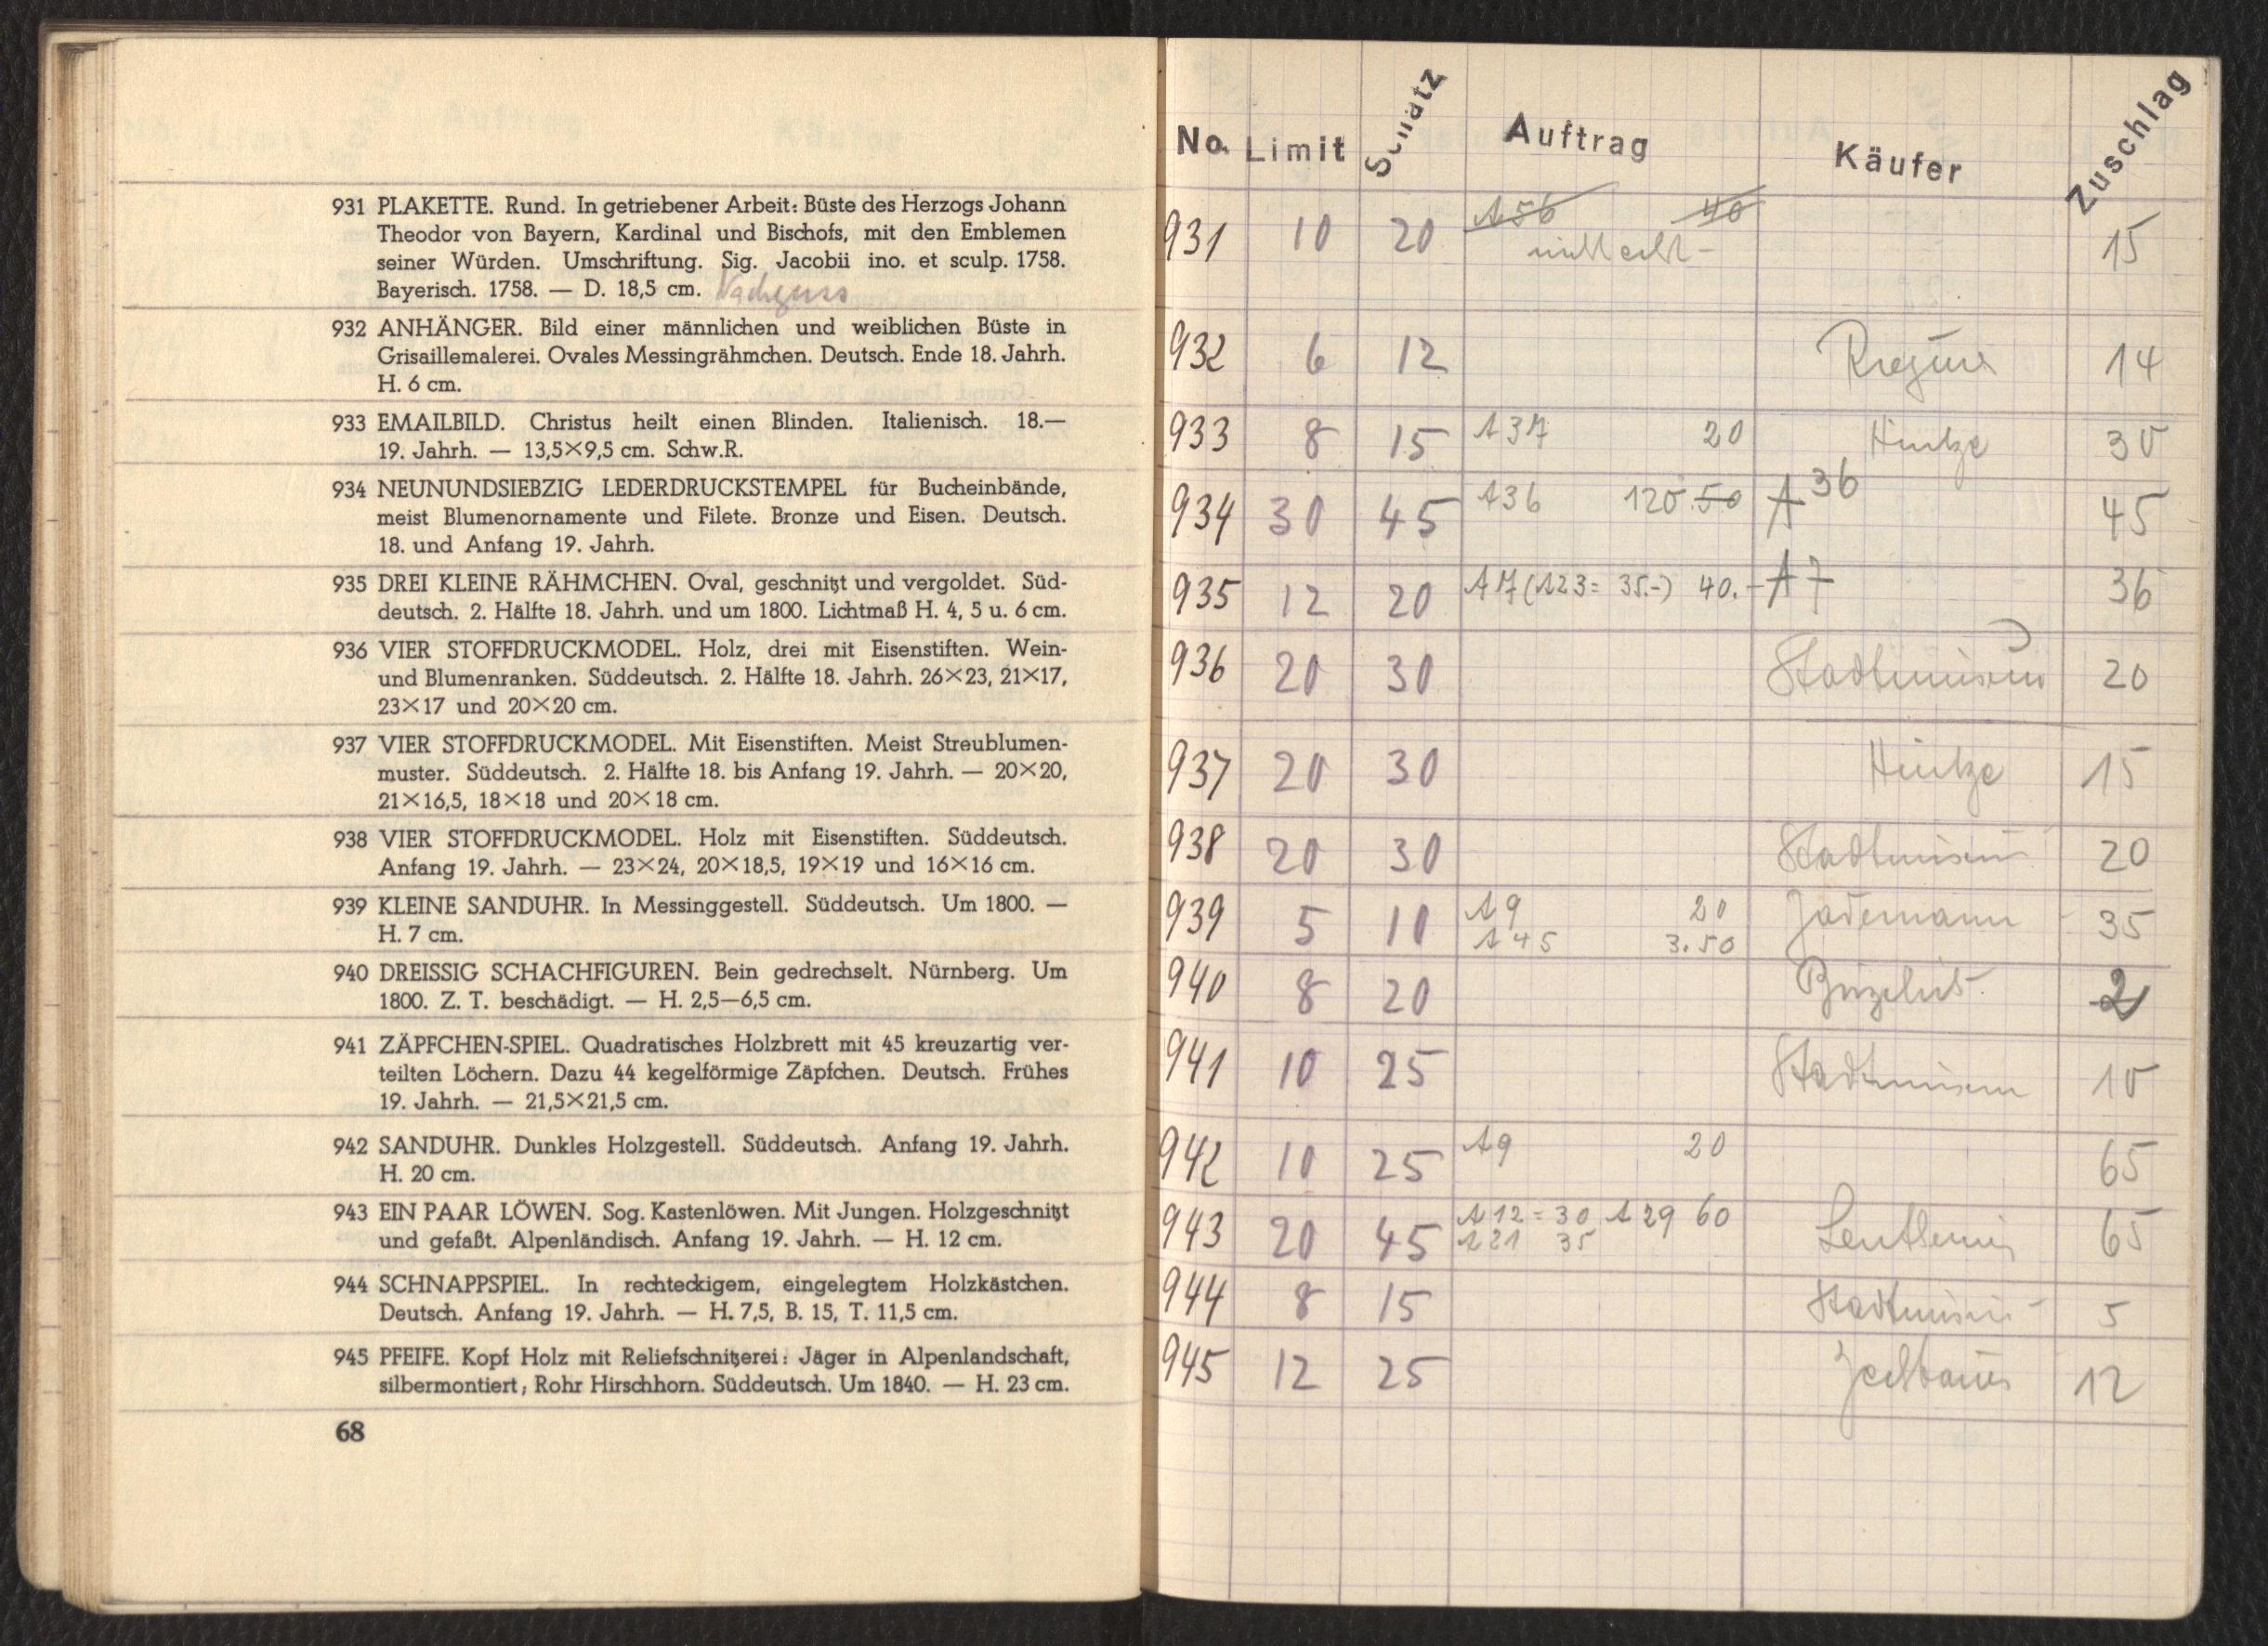 931 PLAKETTE. Rund. In getriebener Arbeit: Büste des Herzogs Johann
Theodor von Bayern, Kardinal und Bischofs, mit den Emblemen
seiner Würden. Umschriftung. Sig. Jacobii ino. et sculp. 1758.
Bayerisch. 1758. — D. 18,5 cm. Nachguss
932 ANHÄNGER. Bild einer männlichen und weiblichen Büste in
Grisaillemalerei. Ovales Messingrähmchen. Deutsch. Ende 18. Jahrh.
H. 6 cm.
933 EMAILBILD. Christus heilt einen Blinden. Italienisch. 18.—
19. Jahrh. — 13,5×9,5 cm. Schw.R.
934 NEUNUNDSIEBZIG LEDERDRUCKSTEMPEL für Bucheinbände,
meist Blumenornamente und Filete. Bronze und Eisen. Deutsch.
18. und Anfang 19. Jahrh.
935 DREI KLEINE RÄHMCHEN. Oval, geschnitzt und vergoldet. Süd-
deutsch. 2. Hälfte 18. Jahrh. und um 1800. Lichtmaß H. 4, 5 u. 6 cm.
936 VIER STOFFDRUCKMODEL. Holz, drei mit Eisenstiften. Wein-
und Blumenranken. Süddeutsch. 2. Hälfte 18. Jahrh. 26×23, 21×17,
23×17 und 20×20 cm.
937 VIER STOFFDRUCKMODEL. Mit Eisenstiften. Meist Streublumen-
muster. Süddeutsch. 2. Hälfte 18. bis Anfang 19. Jahrh. — 20×20,
21×16,5, 18×18 und 20×18 cm.
938 VIER STOFFDRUCKMODEL. Holz mit Eisenstiften. Süddeutsch.
Anfang 19. Jahrh. — 23×24, 20×18,5, 19×19 und 16×16 cm.
939 KLEINE SANDUHR. In Messinggestell. Süddeutsch. Um 1800. —
H. 7 cm.
940 DREISSIG SCHACHFIGUREN. Bein gedrechselt. Nürnberg. Um
1800. Z. T. beschädigt. — H. 2,5—6,5 cm.
941 ZÄPFCHEN-SPIEL. Quadratisches Holzbrett mit 45 kreuzartig ver-
teilten Löchern. Dazu 44 kegelförmige Zäpfchen. Deutsch. Frühes
19. Jahrh. — 21,5×21,5 cm.
942 SANDUHR. Dunkles Holzgestell. Süddeutsch. Anfang 19. Jahrh.
H. 20 cm.
943 EIN PAAR LÖWEN. Sog. Kastenlöwen. Mit Jungen. Holzgeschnitzt
und gefaßt. Alpenländisch. Anfang 19. Jahrh. — H. 12 cm.
944 SCHNAPPSPIEL. In rechteckigem, eingelegtem Holzkästchen.
Deutsch. Anfang 19. Jahrh. — H. 7,5, B. 15, T. 11,5 cm.
945 PFEIFE. Kopf Holz mit Reliefschnitzerei: Jäger in Alpenlandschaft,
silbermontiert; Rohr Hirschhorn. Süddeutsch. Um 1840. — H. 23 cm.
68
No. Limit Schätz Auftrag Käufer Zuschlag
931 10 20 A 56 40 15
nicht echt -
932 6 12 14
933 8 15 A 37 20 Hintze 30
934 30 45 A36 120 50 A 36 45
935 12 20 A 7 (A23= 35.-) 40.- A 7 36
936 20 30 Stadtmuseum 20
937 20 30 Hintze 15
938 20 30 Stadtmuseum 20
939 5 10 A 9 20 Jademann 35
A 45 3.50
940 8 20 2
941 10 25 Stadtmuseum 10
942 10 25 A9 20 65
943 20 45 A 12 = 30 A 29 60 65
A 21 35
944 8 15 Stadtmuseum 5
945 12 25 12